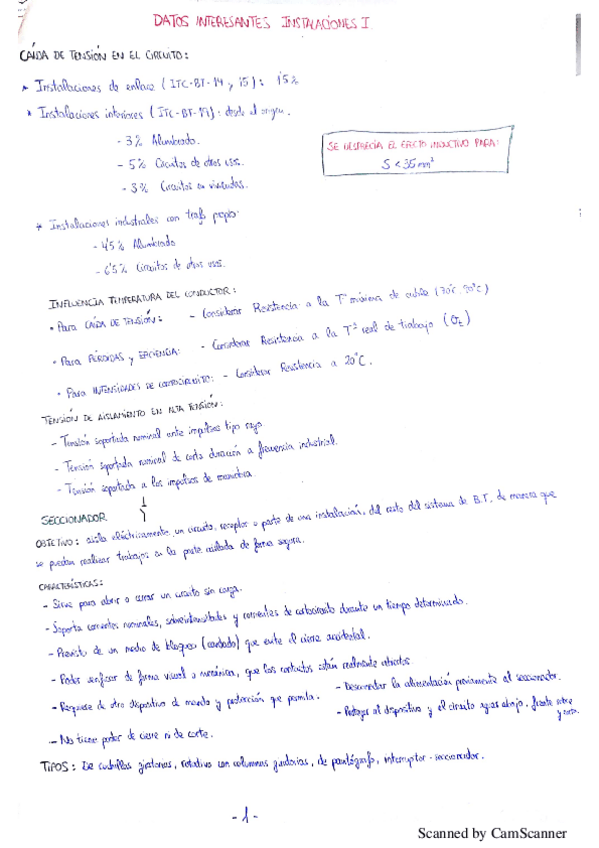 DATOS INTERESANTES INSTALACIONES I
CAÍDA DE TENSIÓN EN EL CIRCUITO:
* Instalaciones de enlace (ITC-BT-14 y 15): 1'5%
* Instalaciones interiores (ITC-BT-19): desde el origen.
- 3% Alumbrado.
- 5% Circuitos de otros usos.
- 3% Circuitos en viviendas.
SE DESPRECIA EL EFECTO INDUCTIVO PARA:
S < 35 mm²
* Instalaciones industriales con trafo propio:
- 4'5% Alumbrado
- 6'5% Circuitos de otros usos.
INFLUENCIA TEMPERATURA DEL CONDUCTOR:
• Para CAÍDA DE TENSIÓN: - Considerar Resistencia a la Tª máxima de cable (70°C, 90°C)
• Para PÉRDIDAS y EFICIENCIA: - Considerar Resistencia a la Tª real de trabajo
• Para INTENSIDADES DE CORTOCIRCUITO: - Considerar Resistencia a 20°C.
TENSIÓN DE AISLAMIENTO EN ALTA TENSIÓN:
- Tensión soportada nominal ante impulsos tipo rayo
- Tensión soportada nominal de corta duración a frecuencia industrial.
- Tensión soportada a los impulsos de maniobra
SECCIONADOR
OBJETIVO: aísla eléctricamente, un circuito, receptor o parte de una instalación, del resto del sistema de B.T. de manera que
se puedan realizar trabajos en la parte aislada de forma segura.
CARACTERÍSTICAS:
- Sirve para abrir o cerrar un circuito sin carga.
- Soporta corrientes nominales, sobreintensidades y corrientes de cortocircuito durante un tiempo determinado.
- Previsto de un medio de bloqueo (candado) que evite el cierre accidental.
- Poder verificar de forma visual o mecánica, que los contactos están realmente abiertos.
- Requiere de otro dispositivo de mando y protección que permita. - Desconectar la alimentación previamente al seccionador.
- Proteger al dispositivo y el circuito aguas abajo, frente sobre
y
- No tiene poder de cierre ni de corte.
TIPOS: De cuchillas giratorias, rotativo con columnas giratorias, de pantógrafo, interruptor-seccionador.
- 1 -
Scanned by CamScanner